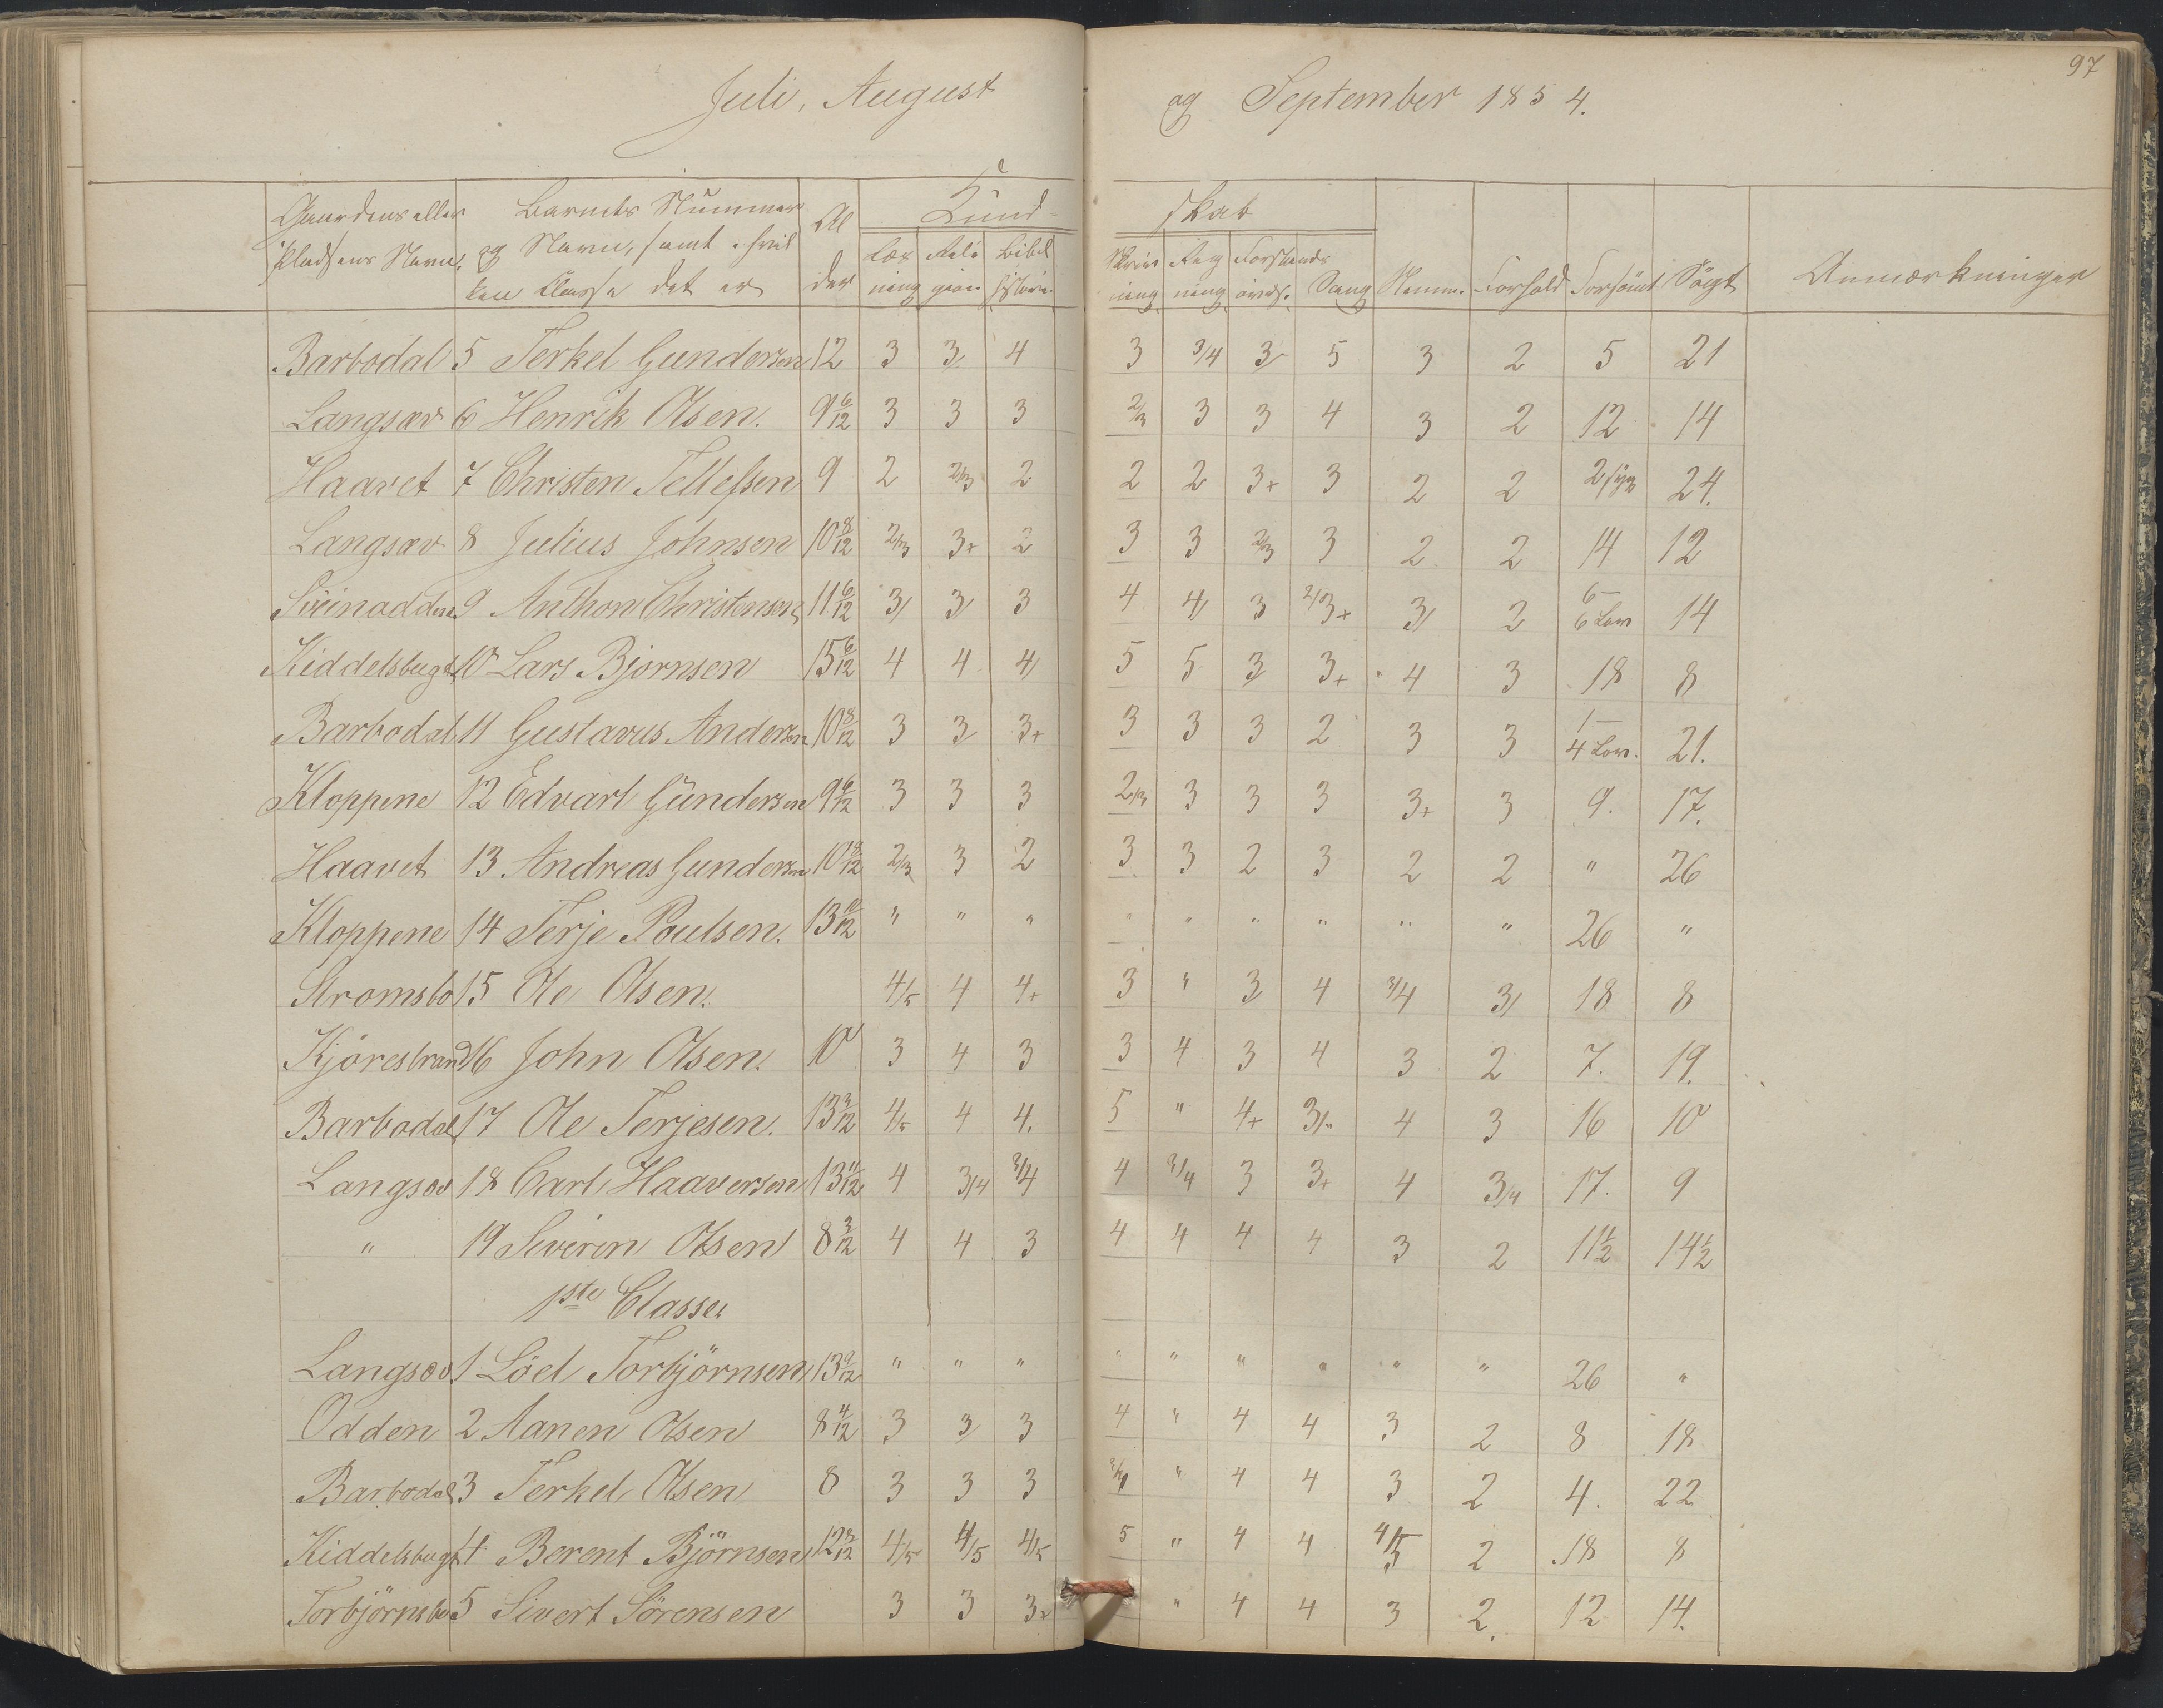 97
Juli, August og September 1854.
Gaardens eller Pladsens Navn. | Barnets Nummer og Navn, samt i hvilken Classe det er | Alder | Kundskab | Nemme | Forhold | Forsömt | Sögt | Anmærkninger
Læsning | Religion | Bibelhistorie | Skrivning | Regning | Forstandsövels. | Sang
Barbodal 5 Terkel Gundersen 12 3 3 4 3 3/4 3 5 3 2 5 21
Langsæv 6 Henrik Olsen. 9 6/12 3 3 3 2/3 3 3 4 3 2 12 14
Haavet 7 Christen Tellefsen 9 2 2/3 2 2 2 3+ 3 2 2 2 syg 24.
Langsæv 8 Julius Johnsen 10 8/12 2/3 3+ 2 3 3 2/3 3 2 2 14 12
9 Anthon Christensen 11 6/12 3 3 3 4 4 3 2/3+ 3 2 6 6 Lov 14
Kiddelsbugt 10 Lars Bjornsen 15 6/12 4 4 4 5 5 3 3+ 4 3 18 8
Barbodal 11 Gustavus Andersen 10 8/12 3 3 3+ 3 3 3 2 3 3 1 4 Lov. 21.
Kloppene 12 Edvart Gundersen 9 6/12 3 3 3 2/3 3 3 3 3+ 3 9. 17.
Haavet 13 Andreas Gundersen 10 2/3 3 2 3 3 2 3 2 2 " 26
Kloppene 14 Terje Poulsen. 13 " " " " " " " " " 26 "
Stromsbo 15 Ole Olsen. 4/5 4 4+ 3 " 3 4 3/4 3 18 8
Kjöresbrand 16 John Olsen. 10 3 4 3 3 4 3 4 3 2 7. 19.
Barbodal 17 Ole Terjesen. 13 3/12 4/5 4 4. 5 " 4+ 3 4 3 16 10
Langsæv 18 Carl Haaversen 13 11/12 4 3/4 3/4 4 3/4 3 3+ 4 3/4 17. 9
" 19 Severin Olsen 8 3/12 4 4 3 4 4 4 4 3 2 11 1/2 14 1/2
1ste Classe
Langsæv 1 Löel Torbjörnsen 13 9/12 " " " " " " " " " 26 "
Odden 2 Aanen Olsen 8 4/12 3 3 3 4 " 4 4 3 2 8 18
Barbodal 3 Terkel Olsen 8 3 3 3 3/4 " 4 4 3 2 4. 22
Kiddelsbugt 4 Berent Björnsen 12 8/12 4/5 4/5 4/5 5 " 4 4 4/5 2 18 8
Torbjörnsbo 5 Sivert Sörensen 3 3 3+ " 4 4 3 2. 12 14.